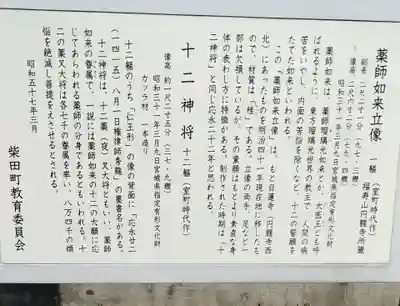 薬師如来立像 一軀(室町時代作)
福寿山円龍寺所蔵
像高 二尺五寸
昭和三十一年三月九日宮城県指定有形文化財
薬師如来は、薬師瑠璃光如来とか、大医王とも呼
ばれるように、東方瑠璃光世界の教主で、人間の病
苦をいやし、内面の苦悩を除くなど、十二の誓願を
たてた如来といわれる。
この「薬師如来立像」は、もと白蓮寺(円龍寺西
北)にあったものを明治四十一年現在地に移したも
ので、材質は「桂」である。立像の両手、足など一
部は欠損しているが、その重顔はもとより素直な身
体の表わし方に特徴がある。制作された時期は「十
二神将」と同じ応永二十二年と思われる。
十二神将 十二軀(室町時代作)
像高 約一尺二寸五分(三七・九糎)
昭和三十一年三月九日宮城県指定有形文化財
カツラ材 一本造り
十二軀のうち「仁王形」の像の背面に「応永廿二
(一四一五)八月一日権律師秀龍」の墨書名がある。
十二神将は、十二薬(夜)叉大将ともいい、薬師
如来の眷属で、一説には薬師如来の十二の大願に応
じてあらわれる薬師の分身であるともいわれる。十
二の薬叉大将は各七千の眷属を率い、八万四千の煩
悩を絶滅し菩提をえさせるとされる。
昭和五十七年三月
柴田町教育委員会